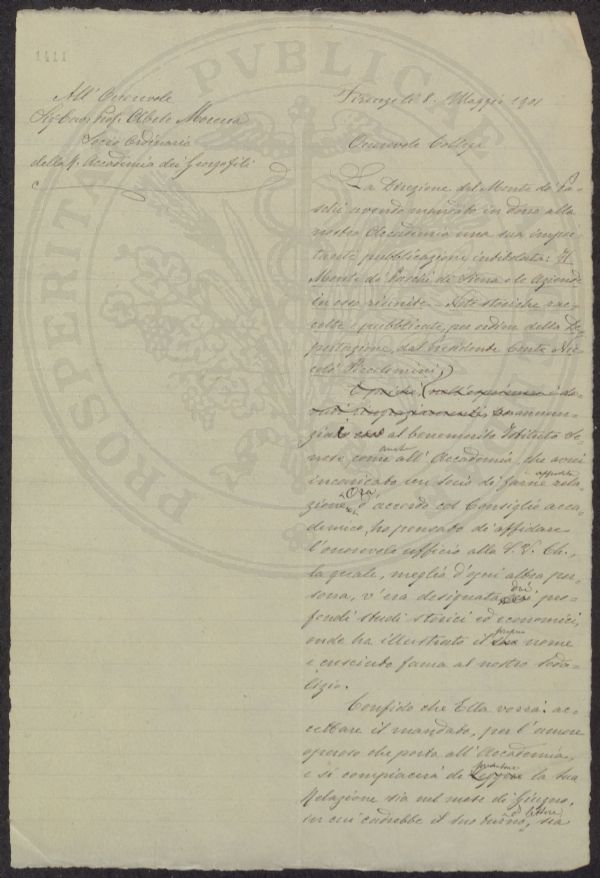 1411
All' Onorevole
Sig. Cav. Prof. Abele Morena
Socio Ordinario
della R. Accademia dei Georgofili
Firenze li 8. Maggio 1901
Onorevole Collega
La Direzione del Monte de' Pa-
schi avendo mandato in dono alla
nostra Accademia una sua impor-
tante pubblicazione intitolata: Il
Monte dei Paschi di Siena e le Aziende
in esso riunite - Note storiche rac-
colte e pubblicate per ordine della De-
putazione, dal Presidente Conte Nic-
colò Piccolomini,
al benemerito Istituto Se-
nese come anche all' Accademia, che avrei
incaricato un socio di farne apposita rela-
zione. Ora d'accordo col Consiglio acca-
demico, ho pensato di affidare
l'onorevole ufficio alla S. V. Ch.,
la quale, meglio d'ogni altra per-
sona, v'era designata dai pro-
fondi studi storici ed economici,
onde ha illustrato il proprio nome
e cresciuto fama al nostro Soda-
lizio.
Confido che Ella vorrà ac-
cettare il mandato, per l'amore
operoso che porta all' Accademia,
e si compiacerà di la sua
Relazione sia nel mese di Giugno,
in cui cadrebbe il suo turno di lettura, sia
PROSPERITATI PVBLICAE